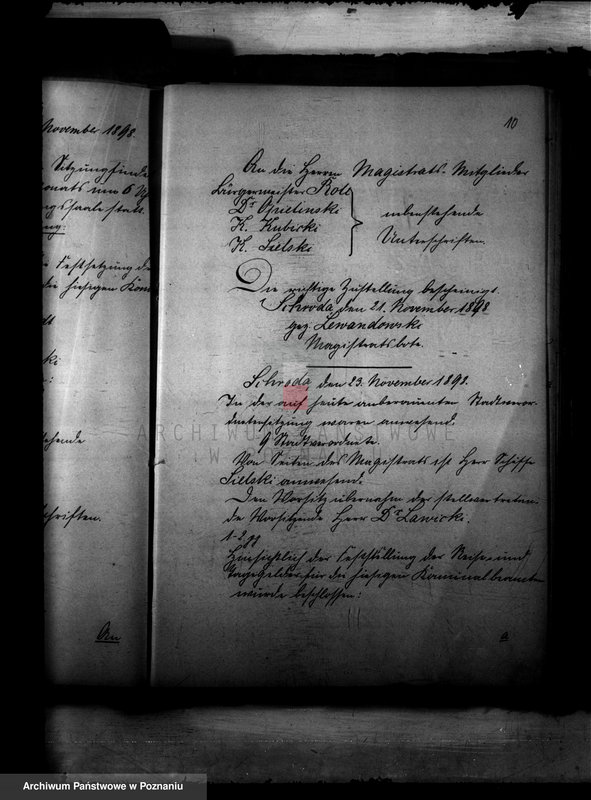 November 1898.
Sitzung finde
onats um 6 Uh
ngssaale statt.
ng:
Festsetzung de
die hiesigen Kom
dt
ki
:
ehende
chriften.
An
10
An die Herren Magistrats-Mitglieder
Bürgermeister Roll
Dr Opielinski
K. Kubicki
K. Sielski
nebenstehende
Unterschriften.
Die richtige Zustellung bescheinigt.
Schroda, den 21. November 1898
gez. Lewandowski
Magistratsbote.
Schroda, den 23. November 1898.
In der auf heute anberaumten Stadtveror-
dnetensitzung waren anwesend.
9 Stadtverordnete.
Von Seiten des Magistrats ist Herr Schöffe
Sielski anwesend.
Den Vorsitz übernahm der stellvertreten-
de Vorsitzende Herr Dr Lawicki.
Hinsichtlich der Feststellung der Reise- und
Tagegelder für die hiesigen Kommunalbeamten
wurde beschlossen:
a
ARCHIWUM PAŃSTWOWE
W POZNANIU
Archiwum Państwowe w Poznaniu